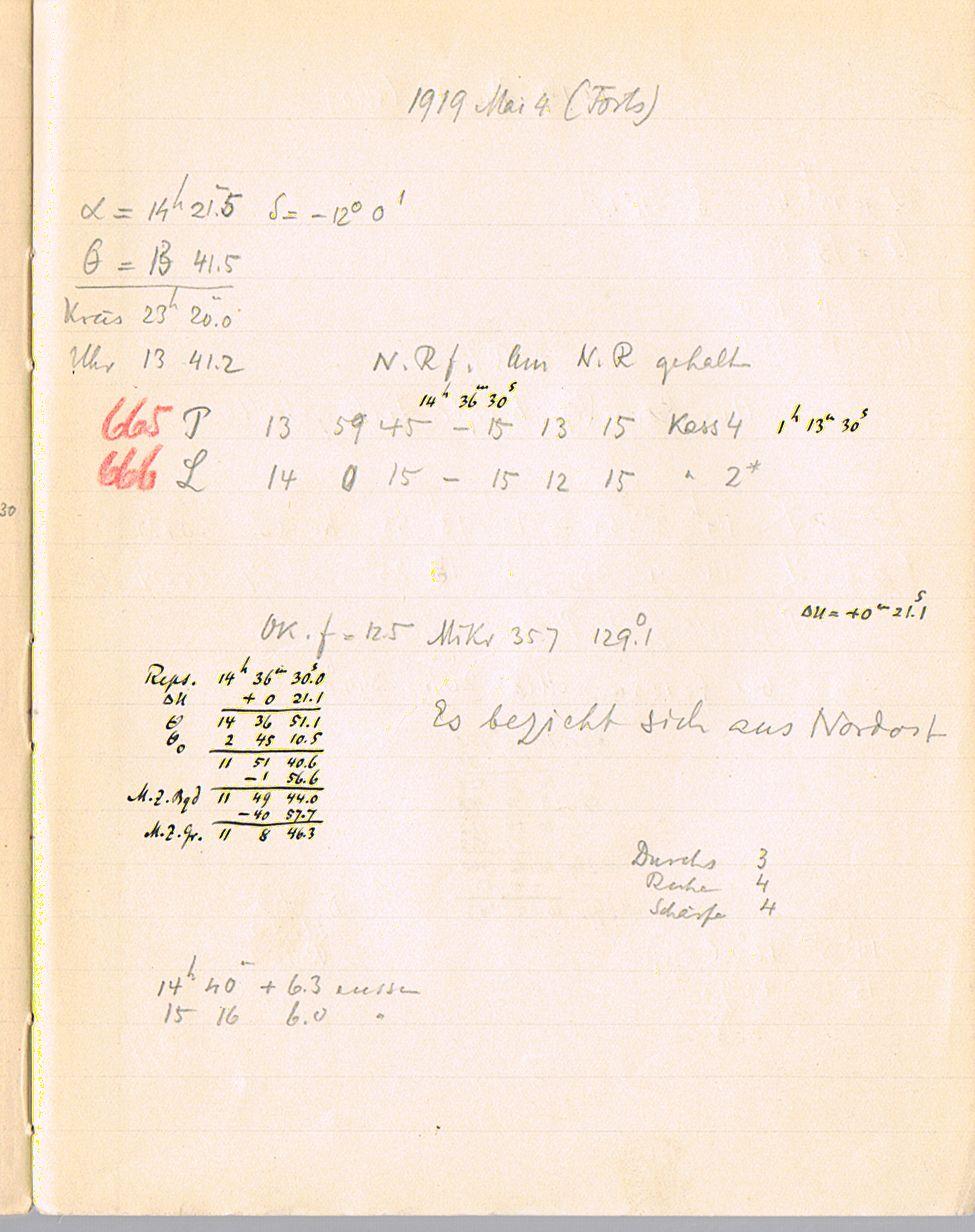 1919 Mai 4 (Forts)
α = 14h 21.m5 δ = -12° 0'
θ = 13 41.5
Kreis 23h 20.m0
Uhr 13 41.2 N.R f. am N.R gehalt
14h 36m 30s
665 P 13 59 45 - 15 13 15 Kass 4 1h 13m 30s
666 L 14 0 15 - 15 12 15 " 2*
30
ΔU = +0m 21.s1
OK. f = 125 Mikr 357 129.°1
Reps. 14h 36m 30.s0
ΔU + 0 21.1
θ 14 36 51.1
θ₀ 2 45 10.5
11 51 40.6
-1 56.6
M.Z.Bgd 11 49 44.0
-40 57.7
M.Z.Gr. 11 8 46.3
Es bezieht sich aus Nordost
Durchs 3
Ruhe 4
Schärfe 4
14h 40m + 6.3 aussen
15 16 6.0 "